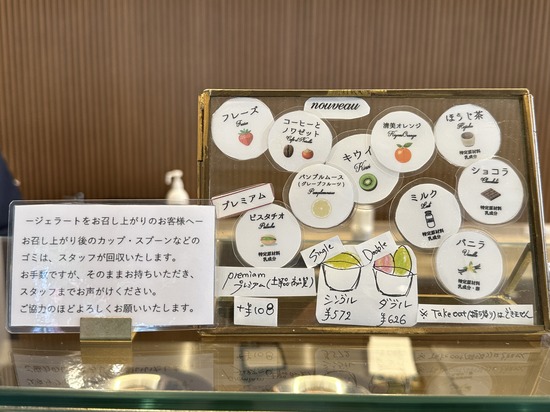 nouveau
フレーズ
コーヒーと
ノワゼット
清美オレンジ
ほうじ茶
特定原材料
乳成分
キウイ
Kiwi
ショコラ
Chocolat
特定原材料
乳成分
パンプルムース
(グレープフルーツ)
Pamplemousse
プレミアム
ミルク
Lait
特定原材料
乳成分
ピスタチオ
Pistache
特定原材料
乳成分
バニラ
Vanille
特定原材料
乳成分・卵
Single
シングル
¥572
Double
ダブル
¥626
premiam
プレミアム
+¥108
※ Take out(箱帰り)はできません
ージェラートをお召し上がりのお客様へー
お召し上がり後のカップ・スプーンなどの
ゴミは、スタッフが回収いたします。
お手数ですが、そのままお持ちいただき、
スタッフまでお声がけください。
ご協力のほどよろしくお願いいたします。